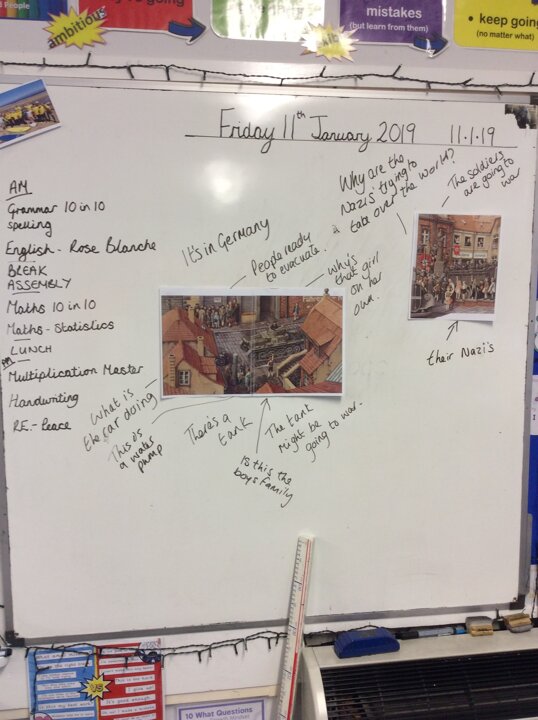 People
ambitious
going
us
mistakes
(but learn from them)
• keep going
(no matter what)
Friday 11th January 2019 11.1.19
AM
Grammar 10 in 10
spelling
English - Rose Blanche
BREAK
ASSEMBLY
Maths 10 in 10
Maths - Statistics
LUNCH
PM
Multiplication Master
Handwriting
R.E. - Peace
It's in Germany
People ready
to evacuate.
Why are the
Nazis' trying to
take over the world?
The soldiers
are going to
war
why's
that girl
on her
own.
their Nazi's
What is
the car doing
This is
a water
pump
There's a
tank
Is this the
boys family
The tank
might be
going to war.
10 What Questions